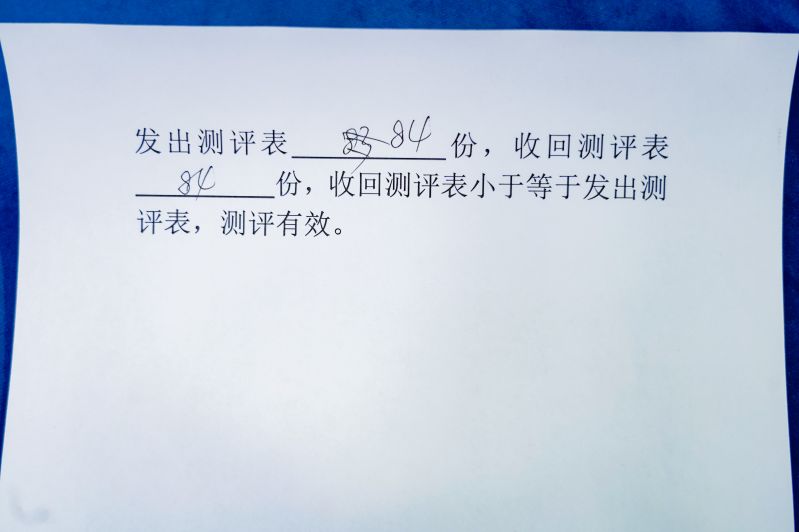 发出测评表 84 份，收回测评表
84 份，收回测评表小于等于发出测
评表，测评有效。